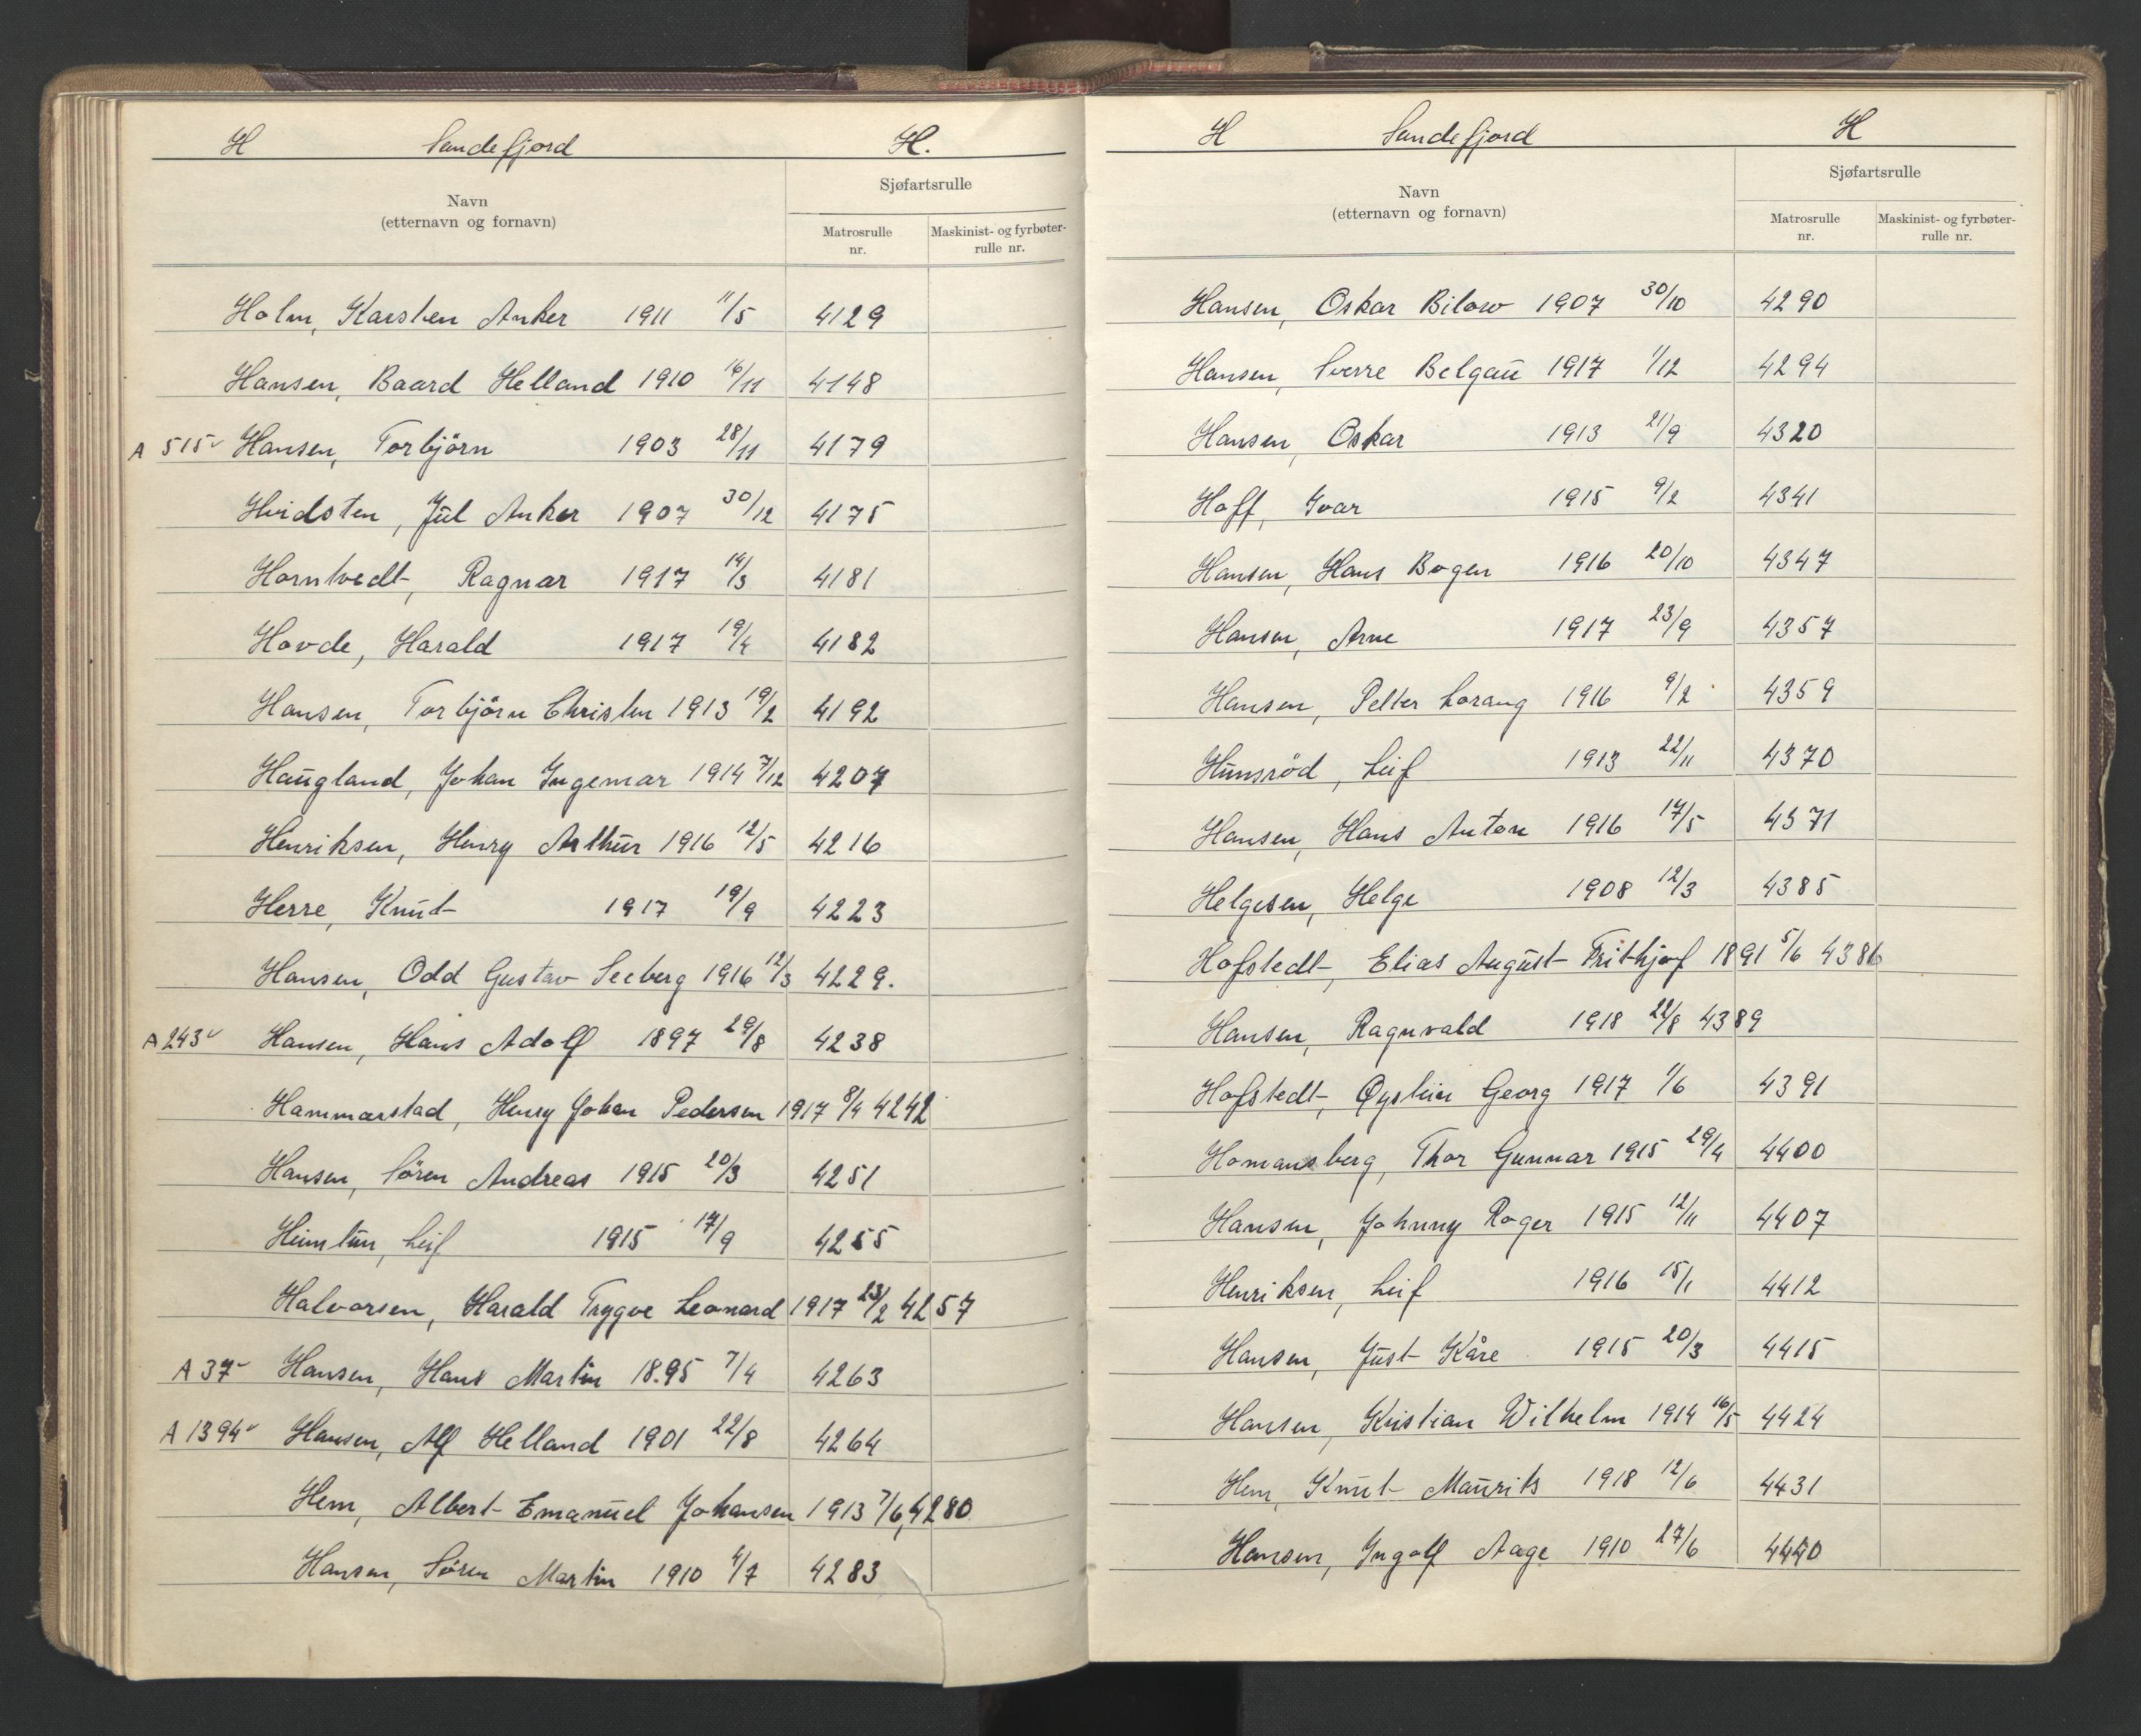 H Sandefjord H.
Sjøfartsrulle
Navn
(etternavn og fornavn)
Matrosrulle nr.
Maskinist- og fyrbøter-rulle nr.
Holm, Karsten Anker 1911 11/5 4129
Hansen, Baard Helland 1910 16/11 4148
A 515 Hansen, Torbjörn 1903 28/11 4179
Hvidsten, Jul Anker 1907 30/12 4175
Horntvedt, Ragnar 1917 14/3 4181
Hovde, Harald 1917 19/4 4182
Hansen, Torbjörn Christen 1913 19/2 4192
Haugland, Johan Ingemar 1914 7/12 4207
Henriksen, Henry Arthur 1916 12/5 4216
Herre, Knut 1917 19/9 4223
Hansen, Odd Gustav Seeberg 1916 12/3 4229.
A 243 Hansen, Hans Adolf 1897 29/8 4238
Hammarstad, Henry Johan Pedersen 1917 8/4 4242
Hansen, Sören Andreas 1915 20/3 4251
Heimtun, Leif 1915 17/9 4255
Halvorsen, Harald Trygve Leonard 1917 23/2 4257
A 37 Hansen, Hans Martin 18.95 7/4 4263
A 1394 Hansen, Alf Helland 1901 22/8 4264
Hem, Albert Emanuel Johansen 1913 7/6, 4280
Hansen, Sören Martin 1910 4/7 4283
H Sandefjord H
Sjøfartsrulle
Navn
(etternavn og fornavn)
Matrosrulle nr.
Maskinist- og fyrbøter-rulle nr.
Hansen, Oskar Bilow 1907 30/10 4290
Hansen, Sverre Belgau 1917 1/12 4294
Hansen, Oskar 1913 21/9 4320
Hoff, Ivar 1915 9/2 4341
Hansen, Hans Bogen 1916 20/10 4347
Hansen, Arne 1917 23/9 4357
Hansen, Petter Lorang 1916 9/2 4359
Hunsröd, Leif 1913 22/11 4370
Hansen, Hans Anton 1916 17/5 4371
Helgesen, Helge 1908 12/3 4385
Hofstedt, Elias August Frithjof 1891 5/6 4386
Hansen, Ragnvald 1918 22/8 4389
Hofstedt, Øystein Georg 1917 1/6 4391
Homansberg, Thor Gunnar 1915 29/4 4400
Hansen, Johnny Roger 1915 12/11 4407
Henriksen, Leif 1916 15/1 4412
Hansen, Just Kåre 1915 20/3 4415
Hansen, Kristian Wilhelm 1914 16/5 4424
Hem, Knut Maurits 1918 12/6 4431
Hansen, Ingolf Aage 1910 27/6 4440